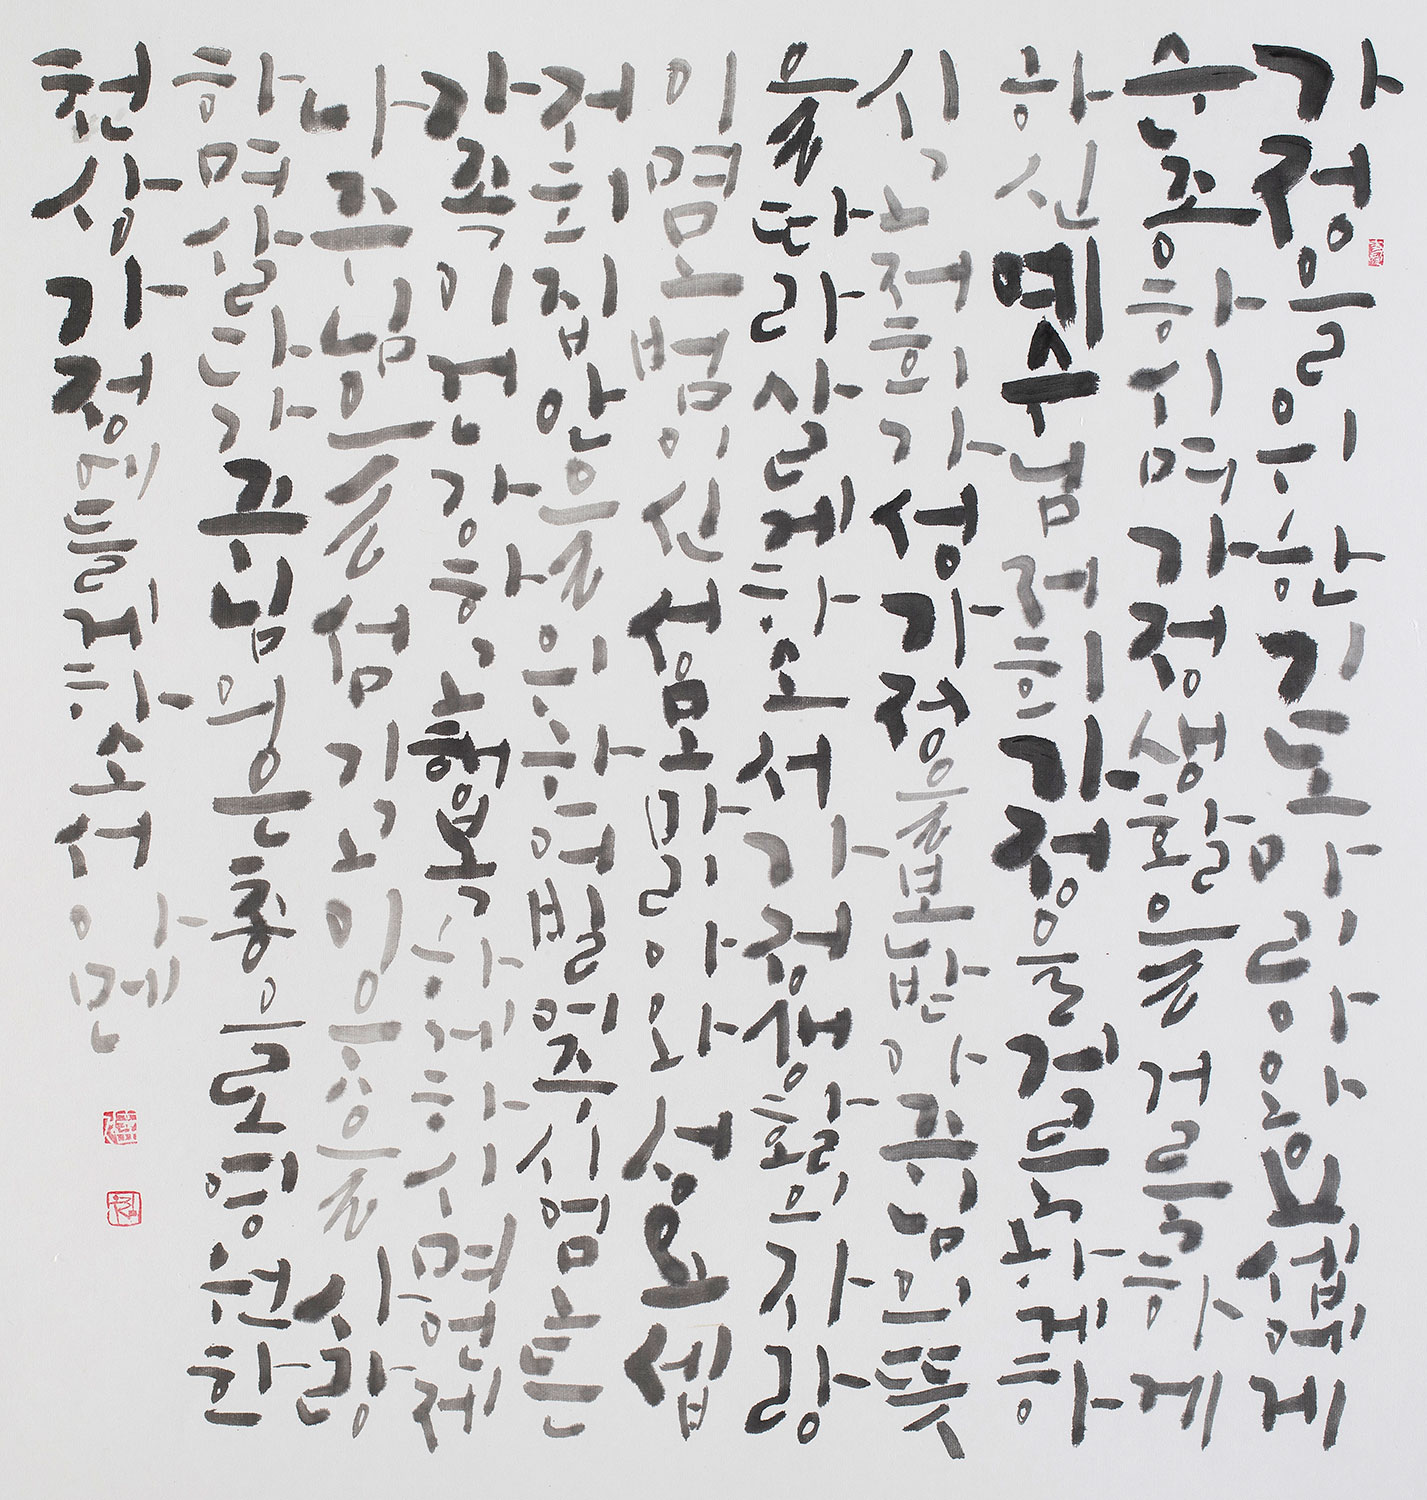 가정을위한기도마리아와요셉에게
순종하시며가정생활을거룩하게
하신예수님저희가정을거룩하게하
시고저희가성가정을본받아주님의뜻
을따라살게하소서가정생활의자랑
이며모범이신성모마리아와성요셉
저희집안을위하여빌어주시어모든
가족이건강하고행복하게하시며언제
나주님을섬기고이웃을사랑
하며살다가주님의은총으로영원한
천상가정에들게하소서아멘